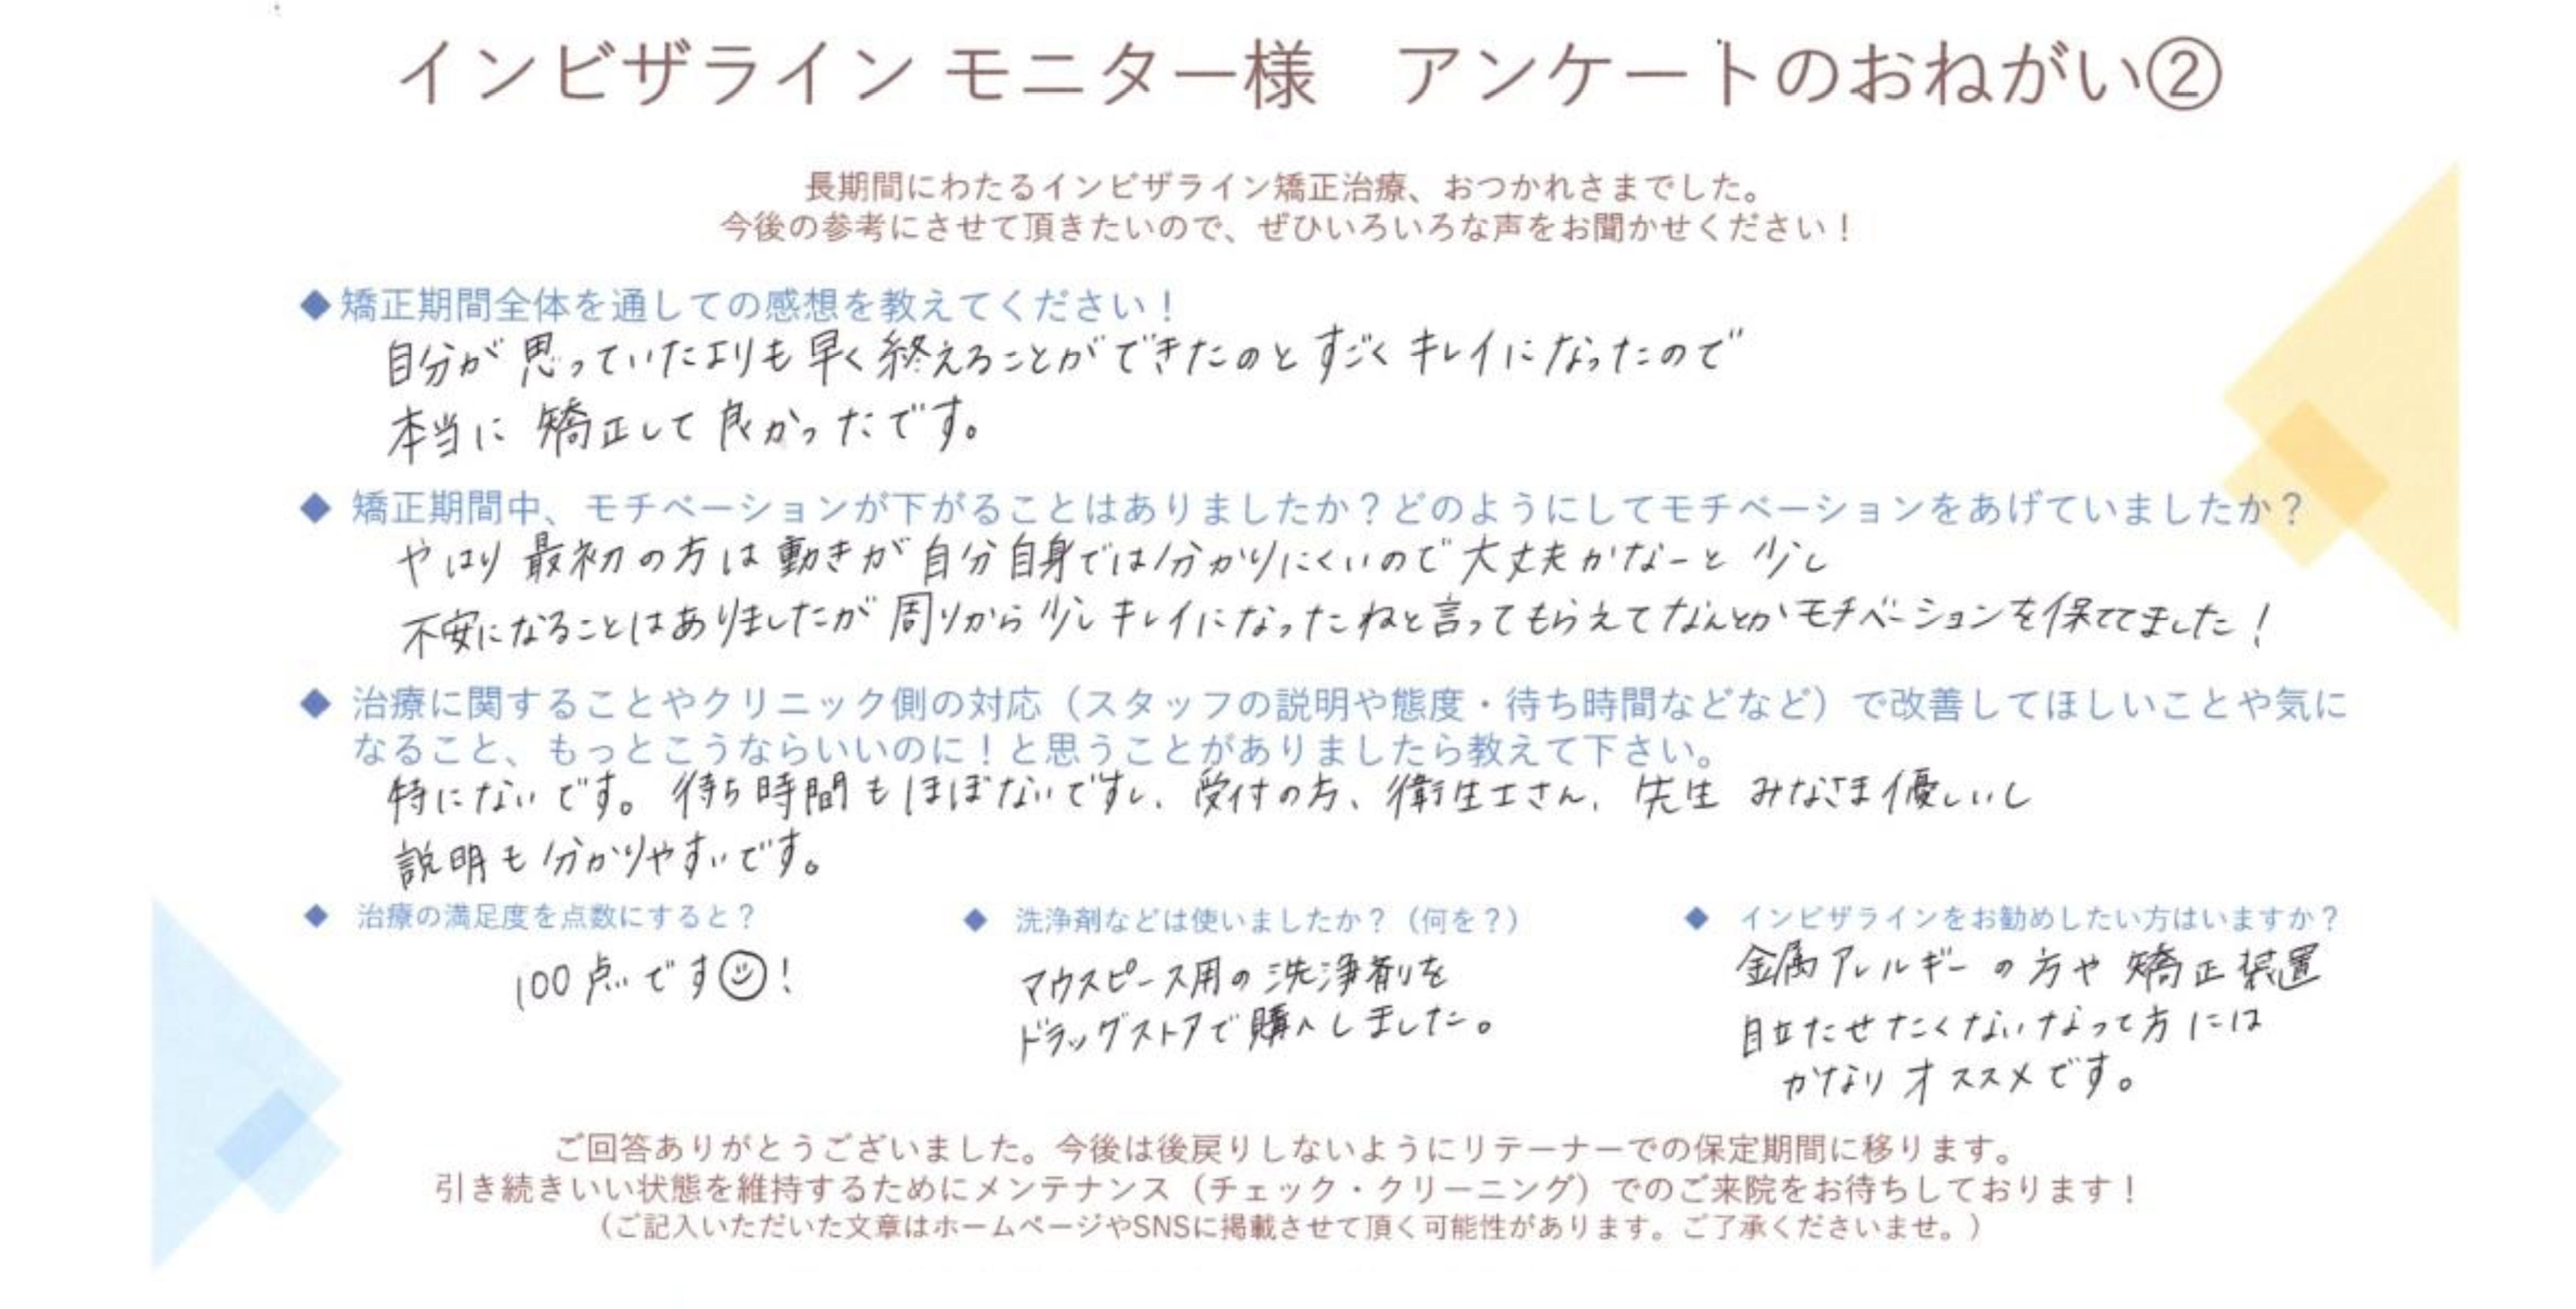 インビザライン モニター様　アンケートのおねがい②
長期間にわたるインビザライン矯正治療、おつかれさまでした。
今後の参考にさせて頂きたいので、ぜひいろいろな声をお聞かせください！
◆矯正期間全体を通しての感想を教えてください！
自分が思っていたよりも早く終えることができたのとすごくキレイになったので
本当に矯正して良かったです。
◆ 矯正期間中、モチベーションが下がることはありましたか？どのようにしてモチベーションをあげていましたか？
やはり最初の方は動きが自分自身では分かりにくいので大丈夫かなーと少し
不安になることはありましたが周りから少しキレイになったねと言ってもらえてなんとかモチベーションを保ててました！
◆ 治療に関することやクリニック側の対応（スタッフの説明や態度・待ち時間などなど）で改善してほしいことや気に
なること、もっとこうならいいのに！と思うことがありましたら教えて下さい。
特にないです。待ち時間もほぼないですし、受付の方、衛生士さん、先生 みなさま優しいし
説明も分かりやすいです。
◆ 治療の満足度を点数にすると？
100点です☺！
◆ 洗浄剤などは使いましたか？（何を？）
マウスピース用の洗浄剤を
ドラッグストアで購入しました。
◆ インビザラインをお勧めしたい方はいますか？
金属アレルギーの方や矯正装置
目立たせたくないなって方には
かなりオススメです。
ご回答ありがとうございました。今後は後戻りしないようにリテーナーでの保定期間に移ります。
引き続きいい状態を維持するためにメンテナンス（チェック・クリーニング）でのご来院をお待ちしております！
（ご記入いただいた文章はホームページやSNSに掲載させて頂く可能性があります。ご了承くださいませ。）